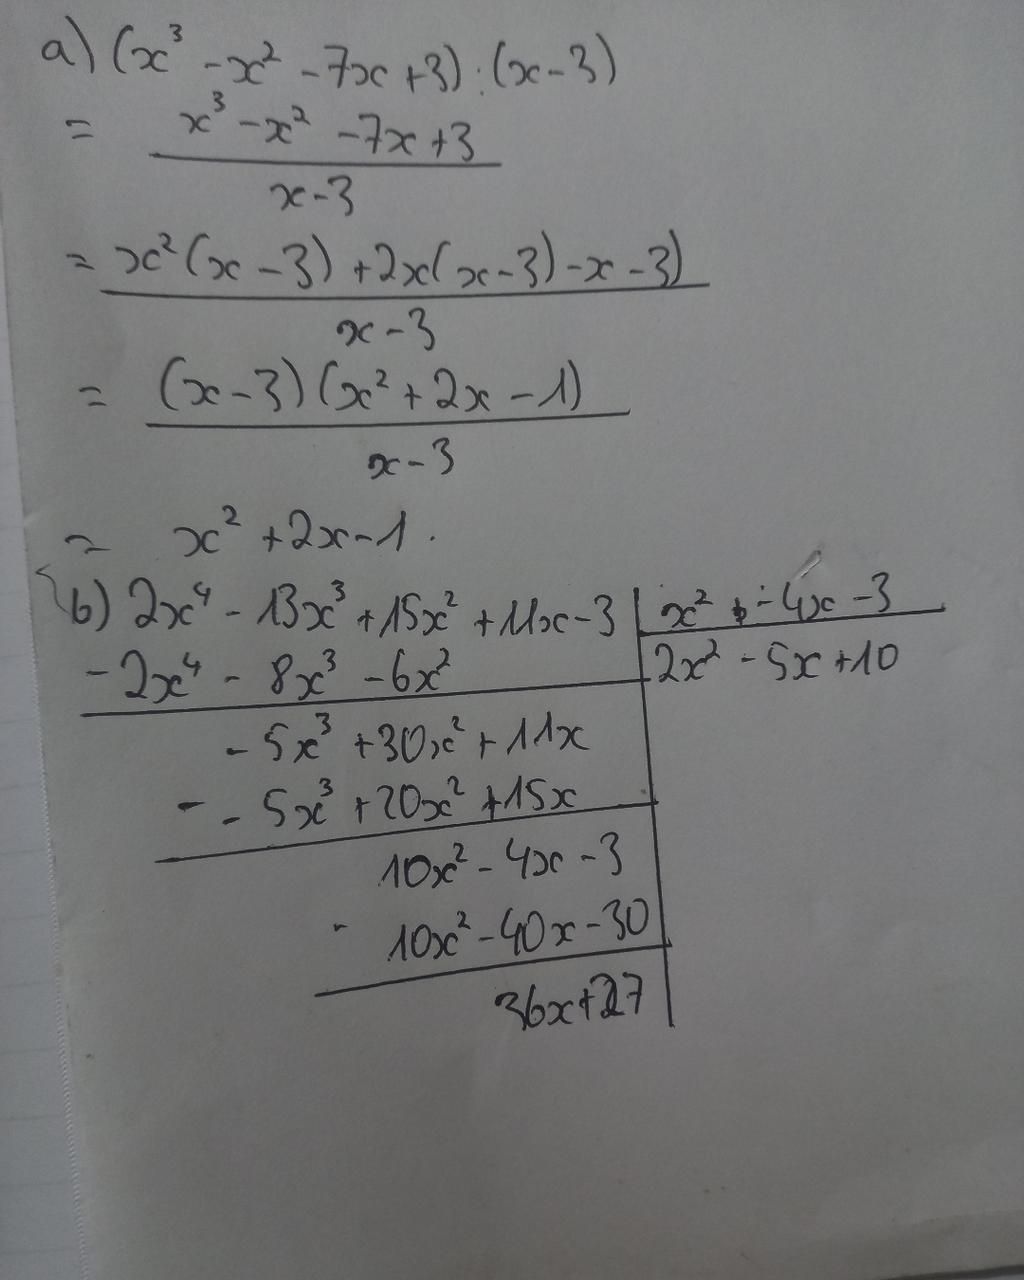 a) (x³ - x² - 7x + 3) : (x - 3)
= x³ - x² - 7x + 3
x - 3
= x²(x - 3) + 2x(x - 3) - x - 3)
x - 3
= (x - 3)(x² + 2x - 1)
x - 3
= x² + 2x - 1.
b) 2x⁴ - 13x³ + 15x² + 11x - 3 | x² - 4x - 3
- 2x⁴ - 8x³ - 6x² | 2x² - 5x + 10
- 5x³ + 30x² + 11x
- - 5x³ + 20x² + 15x
10x² - 4x - 3
- 10x² - 40x - 30
36x + 27